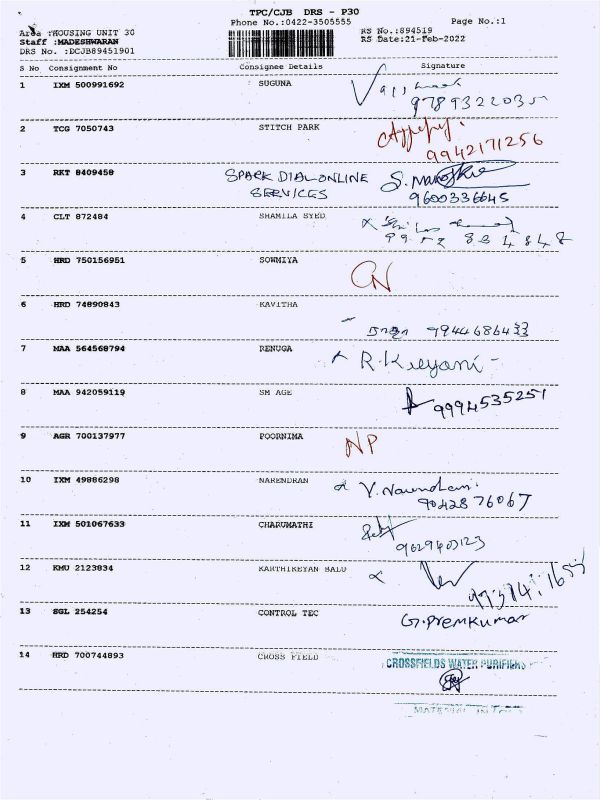 TPC/CJB DRS - P30
Phone No.:0422-3505555 Page No.:1
Area :HOUSING UNIT 30 RS No.:894519
Staff :MADESHWARAN RS Date:21-Feb-2022
DRS No. :DCJB89451901
S No Consignment No Consignee Details Signature
1 IXM 500991692 SUGUNA
9789322035
2 TCG 7050743 STITCH PARK
9942171256
3 RKT 8409458 SPARK DIAL ONLINE S. Manojku
SERVICES 9600336645
4 CLT 872484 SHAMILA SYED
9952 884848
5 HRD 750156951 SOWMIYA CN
6 HRD 74890843 KAVITHA
ராஜா 9944686433
7 MAA 564568794 RENUGA R. Kalyani
8 MAA 942059119 SM AGE 9994535251
9 AGR 700137977 POORNIMA NP
10 IXM 49886298 NARENDRAN V. Narendran
90428 76067
11 IXM 501067633 CHARUMATHI
9029403123
12 KMU 2123834 KARTHIKEYAN BALU
13 SGL 254254 CONTROL TEC G. Premkumar
14 HRD 700744893 CROSS FIELD CROSSFIELDS WATER PURIFIERS
MATERIAL